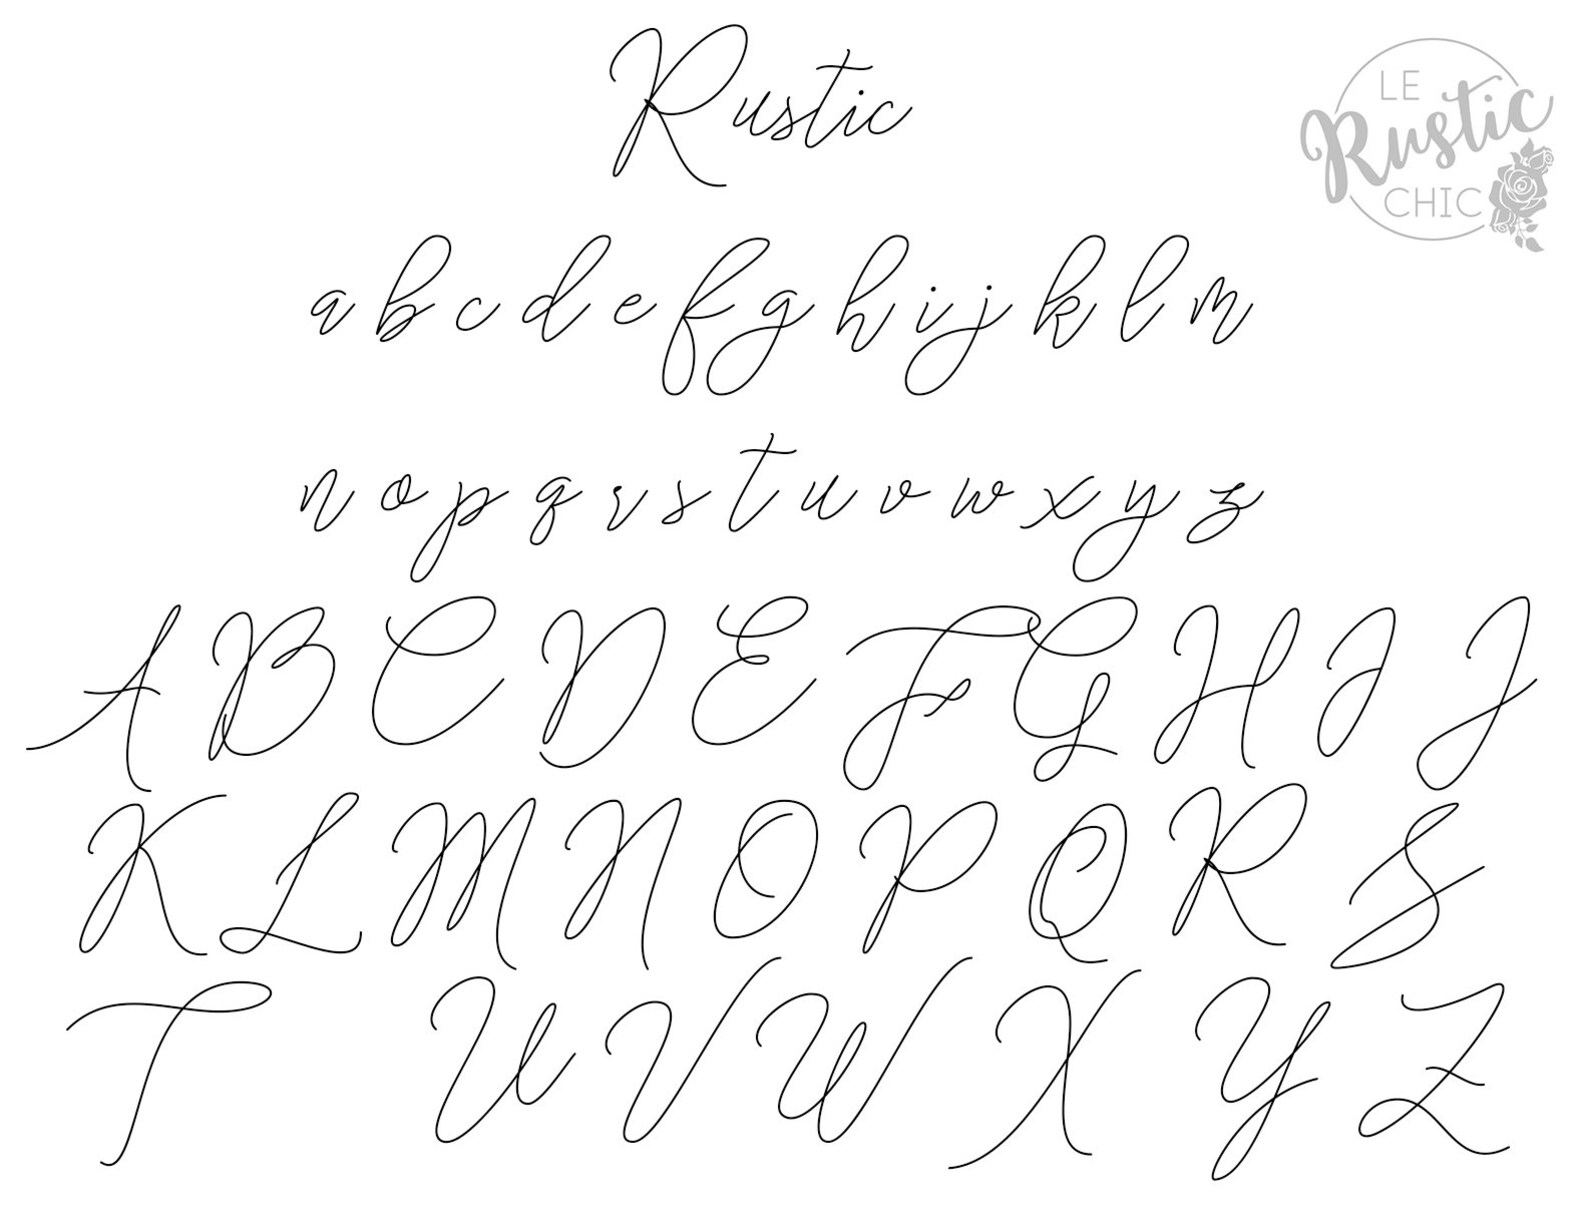 Rustic
LE
Rustic
CHIC
a b c d e f g h i j k l m
n o p q r s t u v w x y z
A B C D E F G H I J
K L M N O P Q R S
T U V W X Y Z